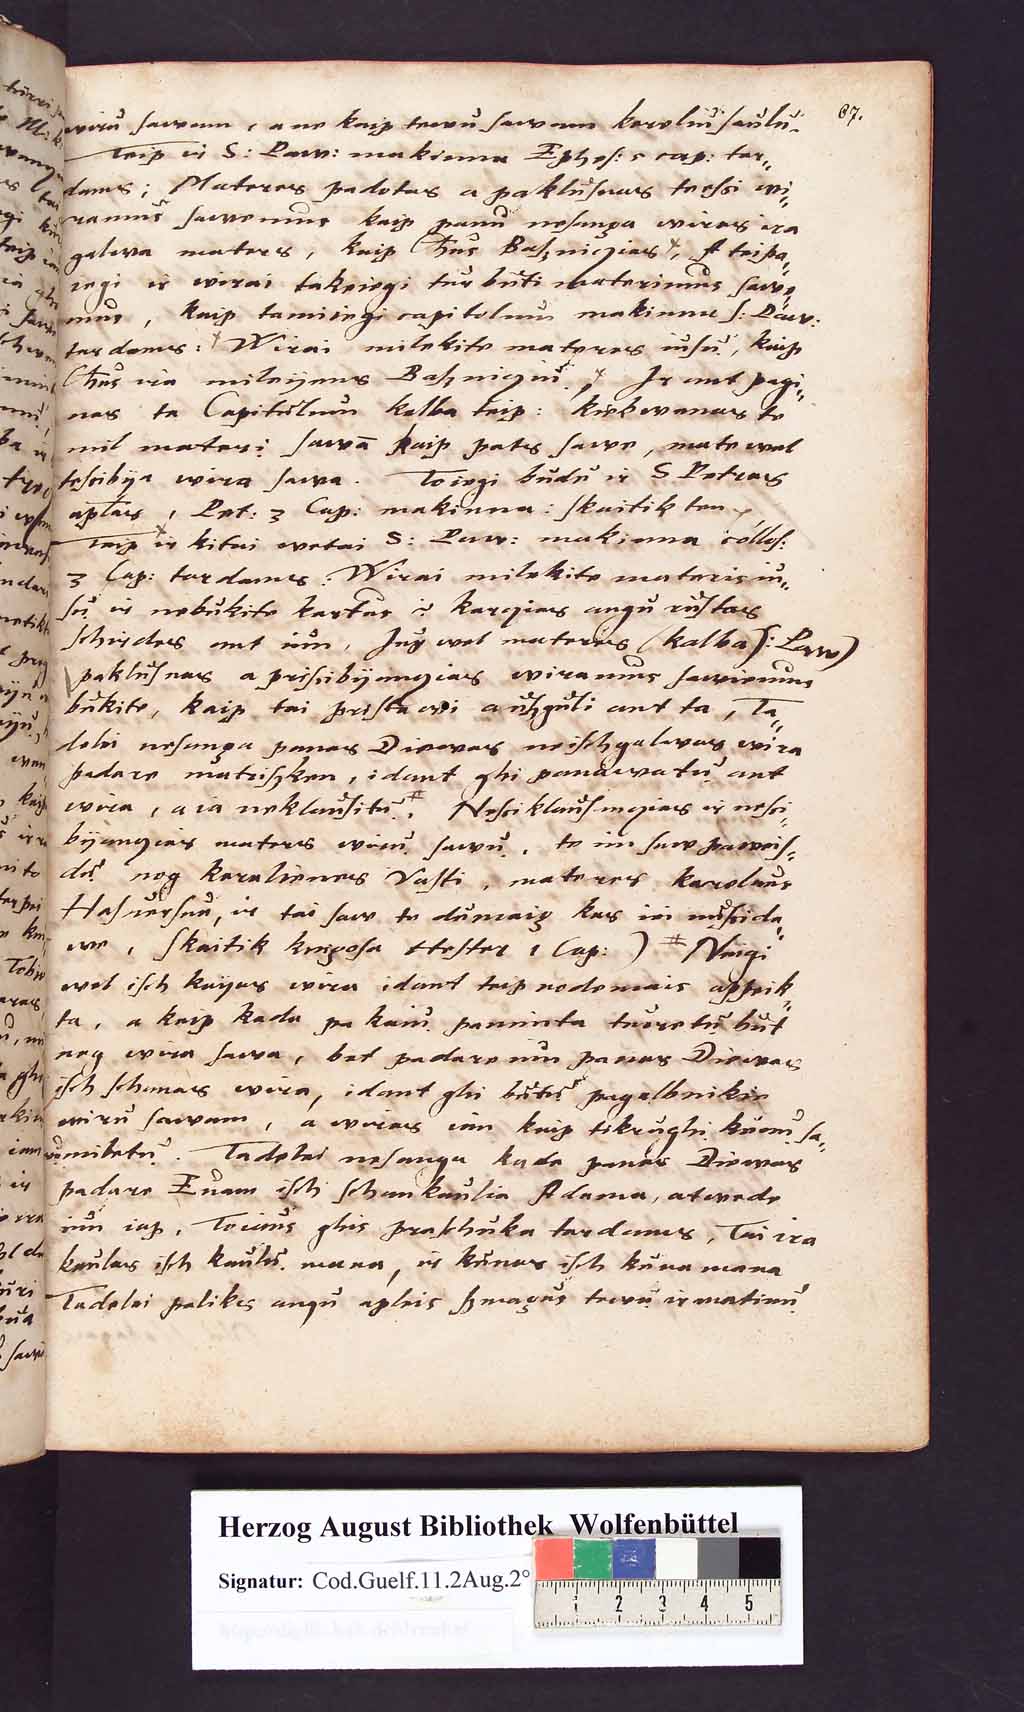 67.
wiru sawam, a ne kaip tewu sawam karoliu saulu.
Teip ir S: Paw: makinna Ephes: 5 cap: tar„
dams; Materes padotas a paklusnas tessi wi„
ramus sawemus kaip panu nesanga wiras ira
galwa materes, kaip Chus Baßniczias, A teipa„
iegi ir wirai takeiegi tur buti materimus sawe„
mus, kaip tamiegi capitolum makinna S: Paw:
tardams: Wirai milekite materes iusu, kaip
Chus ira mileijens Baßnicziu. Ir ant pagi„
nas ta Capitulum kalba teip: kiekwenas te
mil materi sawa kaip pats sawe, mate wel
tesibija wira sawa. Toiegi budu ir S Petras
aplas, Pet: 3 Cap: makinna: skaitik ten
Teip ir kitai wetai S: Paw: makinna collos:
3 Cap: tardams: Wirai milekite materis iu„
su ir nebukite kartus ir karczias angu rustas
schirdes ant iun, Jus wel materes (kalba S: Paw)
paklusnas a prisibijanczias wiramus sawiemus
bukite, kaip tai pristawi außguli ant ta, Ta„
delei nesanga panas Diewas ne isch galwas wira
padare materischken, idant ghi panawatu ant
wira, a ia neklausitu. # Nesiklausanczias ir nesi„
bijanczias materes wiru sawu, te im saw paweis„
da nog karalienes Vasti, materes karolaus
Hasuersus, ir tai saw te dumaiʒ kas iei nusida„
we, skaitik knigosa Hester 1 Cap: ) # Neigi
wel isch kayas wira idant teip nodemais appeik„
ta, a kaip kada pa kaiu paminta turetu but
nog wira sawa, bet padare iun panas Diewas
isch schonas wira, idant ghi butu pagalbnikie
wiru sawam, a wiras ian kaip tikrughi kunu sa„
wa miletu. Tadelei nesanga kada panas Diewas
padare Euam isch schonkaulia Adama, atwede
iun iap, Toians ghis praschuka tardams, Tai ira
kaulas isch kaulu mana, ir kunas isch kuna mana
Tadelei paliks angu apleis ßmagus tewu ir matinu
Herzog August Bibliothek Wolfenbüttel
Signatur: Cod.Guelf.11.2Aug.2°
1 2 3 4 5